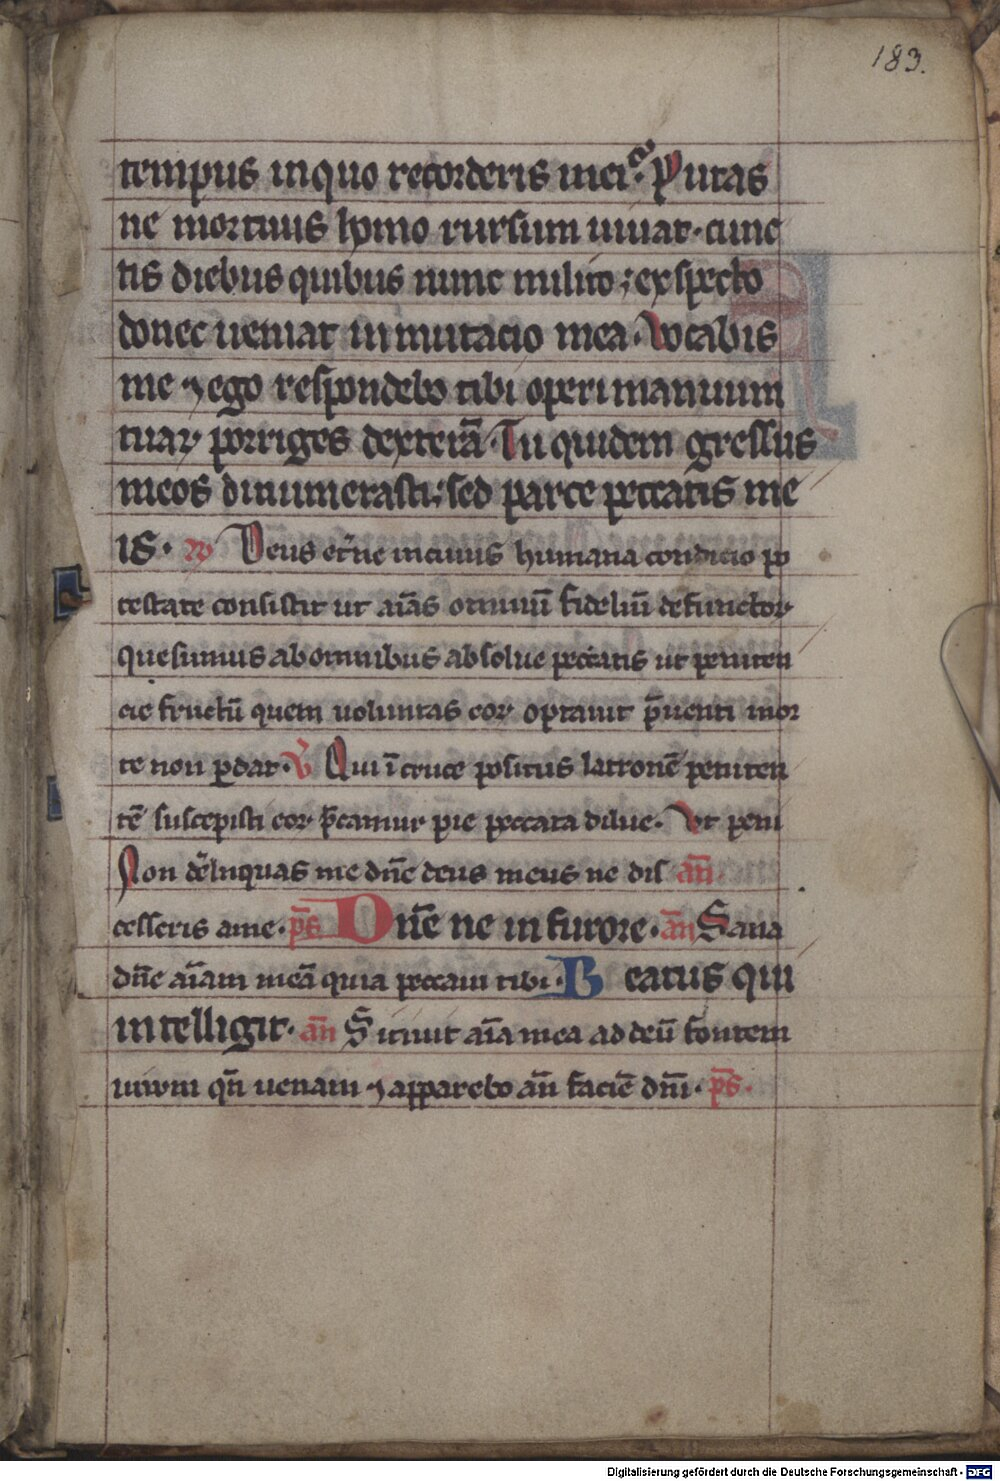 183.
tempus in quo recorderis mei? Putas
ne mortuus homo rursum uiuat. cunc
tis diebus quibus nunc milito; exspecto
donec ueniat inmutacio mea. Vocabis
me ⁊ ego respondebo tibi operi manuum
tuaꝝ porriges dexterā. Tu quidem gressus
meos dinumerasti; sed parce peccatis me
is. Deus et̄ne in cuius humana condicio po
testate consistit ut aīas omniū fideliū defunctoꝝ
quesumus ab omnibus absolue peccatis ut peniten
cie fructū quem uoluntas eoꝝ optauit p̄uenti mor
te non ꝑdat. V̄ Qui ī cruce positus latronē peniten
tē suscepisti eoꝝ p̄camur pie peccata dilue. Ut peni
Non derelinquas me dn̄e deus meus ne dis an̄
cesseris a me. ps̄ Dn̄e ne in furore. an̄ Sana
dn̄e aīam meā quia peccaui tibi. Beatus qui
intelligit. an̄ Sitiuit aīa mea ad deū fontem
uiuum qn̄ ueniam ⁊ apparebo an̄ faciē dn̄i. ps̄.
Digitalisierung gefördert durch die Deutsche Forschungsgemeinschaft - DFG